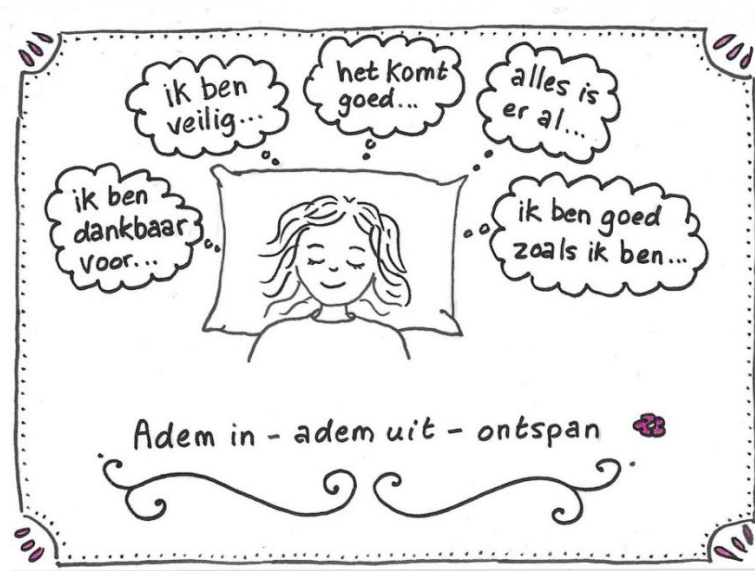 ik ben
dankbaar
voor...
ik ben
veilig...
het komt
goed...
alles is
er al...
ik ben goed
zoals ik ben...
Adem in - adem uit - ontspan